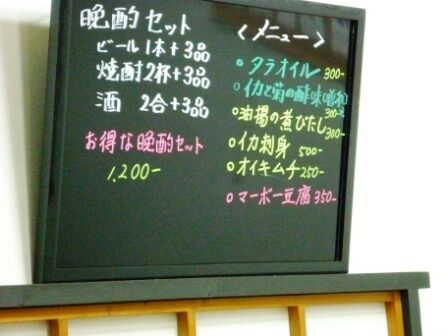 晩酌セット
ビール1本+3品
焼酎2杯+3品
酒 2合+3品
お得な晩酌セット
1,200-
<メニュー>
○タラオイル 300-
○イカと菊の酢味噌和
300-
○油揚の煮びたし
300-
○イカ刺身 500-
○オイキムチ 250-
○マーボー豆腐 350-